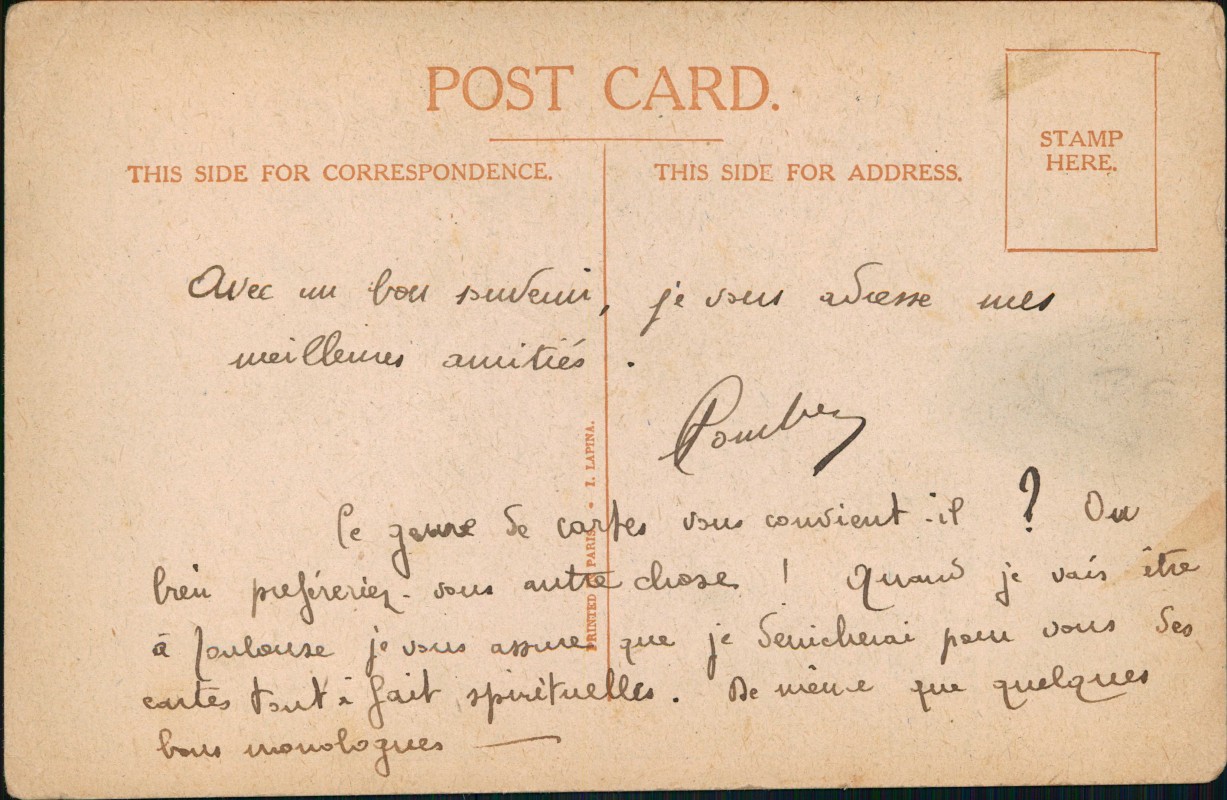 POST CARD.
THIS SIDE FOR CORRESPONDENCE.
THIS SIDE FOR ADDRESS.
STAMP
HERE.
Avec un bon souvenir, je vous adresse mes
meilleures amitiés.
Ce genre de cartes vous convient-il ? Ou
bien prefereriez-vous autre chose ! Quand je vais être
à Toulouse je vous assure que je denicherai pour vous des
cartes tout à fait spirituelles. De même que quelques
bons monologues —
PRINTED PARIS • I. LAPINA.